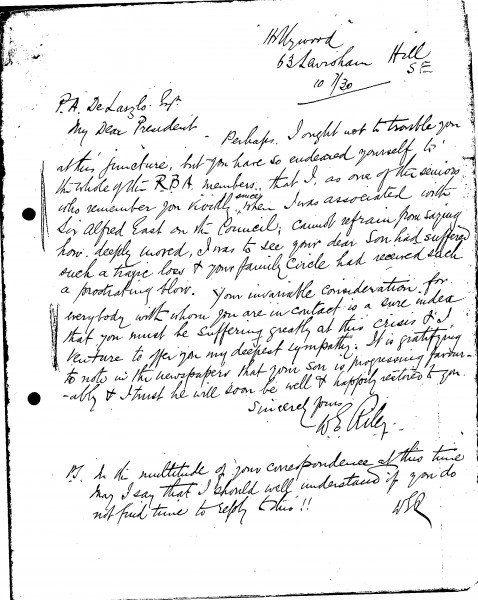 Hollywood
63 Lewisham Hill
SE
10/7/30
P.A. De Laszlo Esqr.
My Dear President - Perhaps I ought not to trouble you
at this juncture, but you have so endeared yourself to
the whole of the R.B.A. members that I as one of the seniors
who remember you vividly since when I was associated with
Sir Alfred East on the Council, cannot refrain from saying
how deeply moved, I was to see your dear Son had suffered
such a tragic loss & your family Circle had received such
a prostrating blow. Your invariable consideration for
everybody with whom you are in contact is a sure index
that you must be suffering greatly at this crisis & I
venture to offer you my deepest sympathy. It is gratifying
to note in the newspapers that your son is progressing favour-
-ably & I trust he will soon be well & happily restored to you.
Sincerely yours
W E Riley
PS. In the multitude of your correspondence at this time
may I say that I should well understand if you do
not find time to reply to this!!
WER